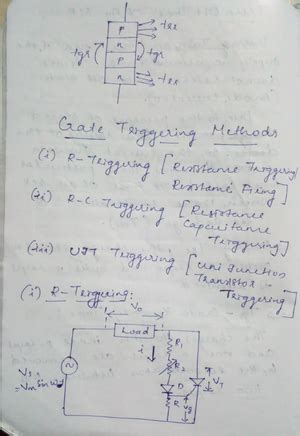 trr
P
n
P
n
tgr
tgr
trr
Gate Triggering Methods
(i) R-Triggering [Resistance Triggering/
Resistance Firing]
(ii) R-C Triggering [Resistance
Capacitance
Triggering]
(iii) UJT Triggering [Uni Junction
Transistor
Triggering]
(i) R-Triggering:
Vo
Load
i
R1
R2
D
R
Vg
VT
Vs
Vm sin wt